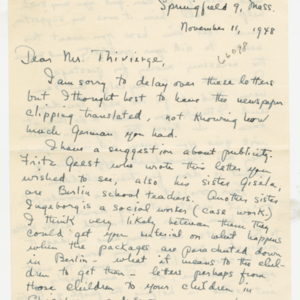 Springfield 9, Mass.
November 11, 1948
66098
Dear Mr. Thivierge,
I am sorry to delay over these letters
but I thought best to have the newspaper
clipping translated, not knowing how
much German you had.
I have a suggestion about publicity.
Fritz Geest who wrote this letter you
wished to see, also his sister Gisela,
are Berlin school teachers. Another sister
Ingeborg is a social worker (case work.)
I think very likely between them they
could get you material on what happens
when the packages are parachuted down
in Berlin - what it means to the chil-
dren to get them - letters perhaps from
those children to your children in